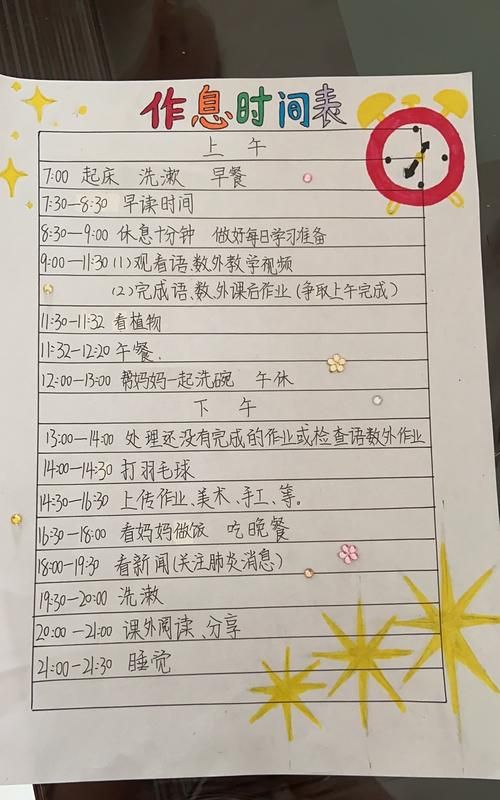 作息时间表
上午
7:00 起床 洗漱 早餐
7:30—8:30 早读时间
8:30—9:00 休息十分钟 做好每日学习准备
9:00—11:30 (1)观看语、数外教学视频
(2)完成语、数、外课后作业(争取上午完成)
11:30—11:32 看植物
11:32—12:20 午餐.
12:00—13:00 帮妈妈一起洗碗 午休
下午
13:00—14:00 处理还没有完成的作业或检查语数外作业
14:00—14:30 打羽毛球
14:30—16:30 上传作业、美术、手工、等。
16:30—18:00 看妈妈做饭 吃晚餐
18:00—19:30 看新闻(关注肺炎消息)
19:30—20:00 洗漱
20:00—21:00 课外阅读、分享
21:00—21:30 睡觉